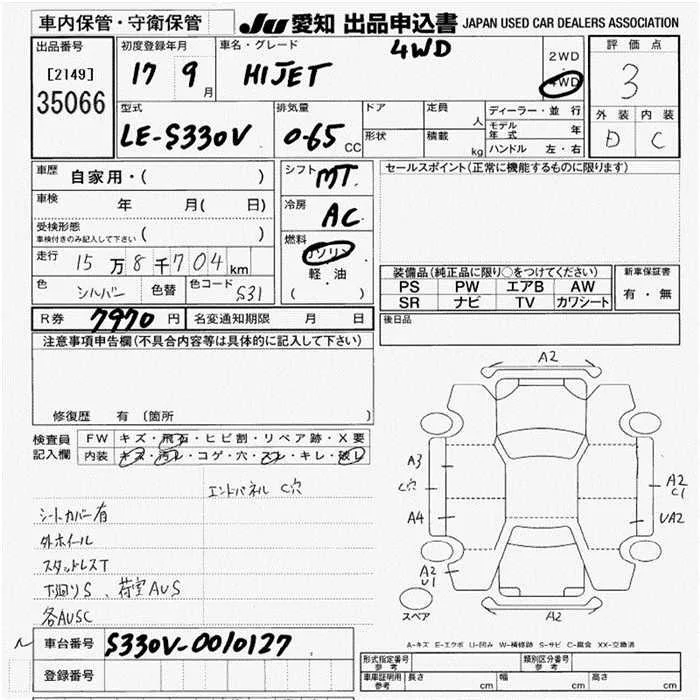 車内保管・守衛保管
Ju 愛知 出品申込書 JAPAN USED CAR DEALERS ASSOCIATION
出品番号
[2149]
35066
初度登録年月
17 9 月
車名・グレード
4WD
HIJET
2WD
・
4WD
評価点
3
外装 内装
D C
型式
LE-S330V
排気量
0.65 CC
ドア
形状
定員 人
積載 kg
ディーラー・並行
モデル年式 年
ハンドル 左・右
車歴 自家用・( )
車検 年 月( 日)
受検形態
車検付きのみ記入して下さい ( )
走行 15万8千704km
色 シルバー 色替 色コード S31
シフト MT
冷房 AC
燃料
ガソリン
軽・油
( )
セールスポイント(正常に機能するものに限ります)
装備品(純正品に限り○をつけてください)
PS PW エアB AW
SR ナビ TV カワシート
新車保証書
有・無
R券 7970 円 名変通知期限 月 日
後日品
注意事項申告欄(不具合内容等は具体的に記入して下さい)
修復歴 有 〔箇所 〕
検査員記入欄
FW キズ・飛石・ヒビ割・リペア跡・X要
内装 キズ・汚レ・コゲ・穴・スレ・キレ・破レ
エンドパネル C穴
シートカバー有
外ホイール
スタッドレスT
下廻りS、荷室AUS
各AUSC
A2
A3
C穴
A4
A2
U1
A2
C1
UA2
A2
スペア
A-キズ E-エクボ U-凹み W-補修跡 S-サビ C-腐食 XX-交換済
車台番号 S330V-0010127
登録番号
形式指定番号 参考
類別区分番号 参考
車庫証明用 参考 長さ cm 幅 cm 高さ cm